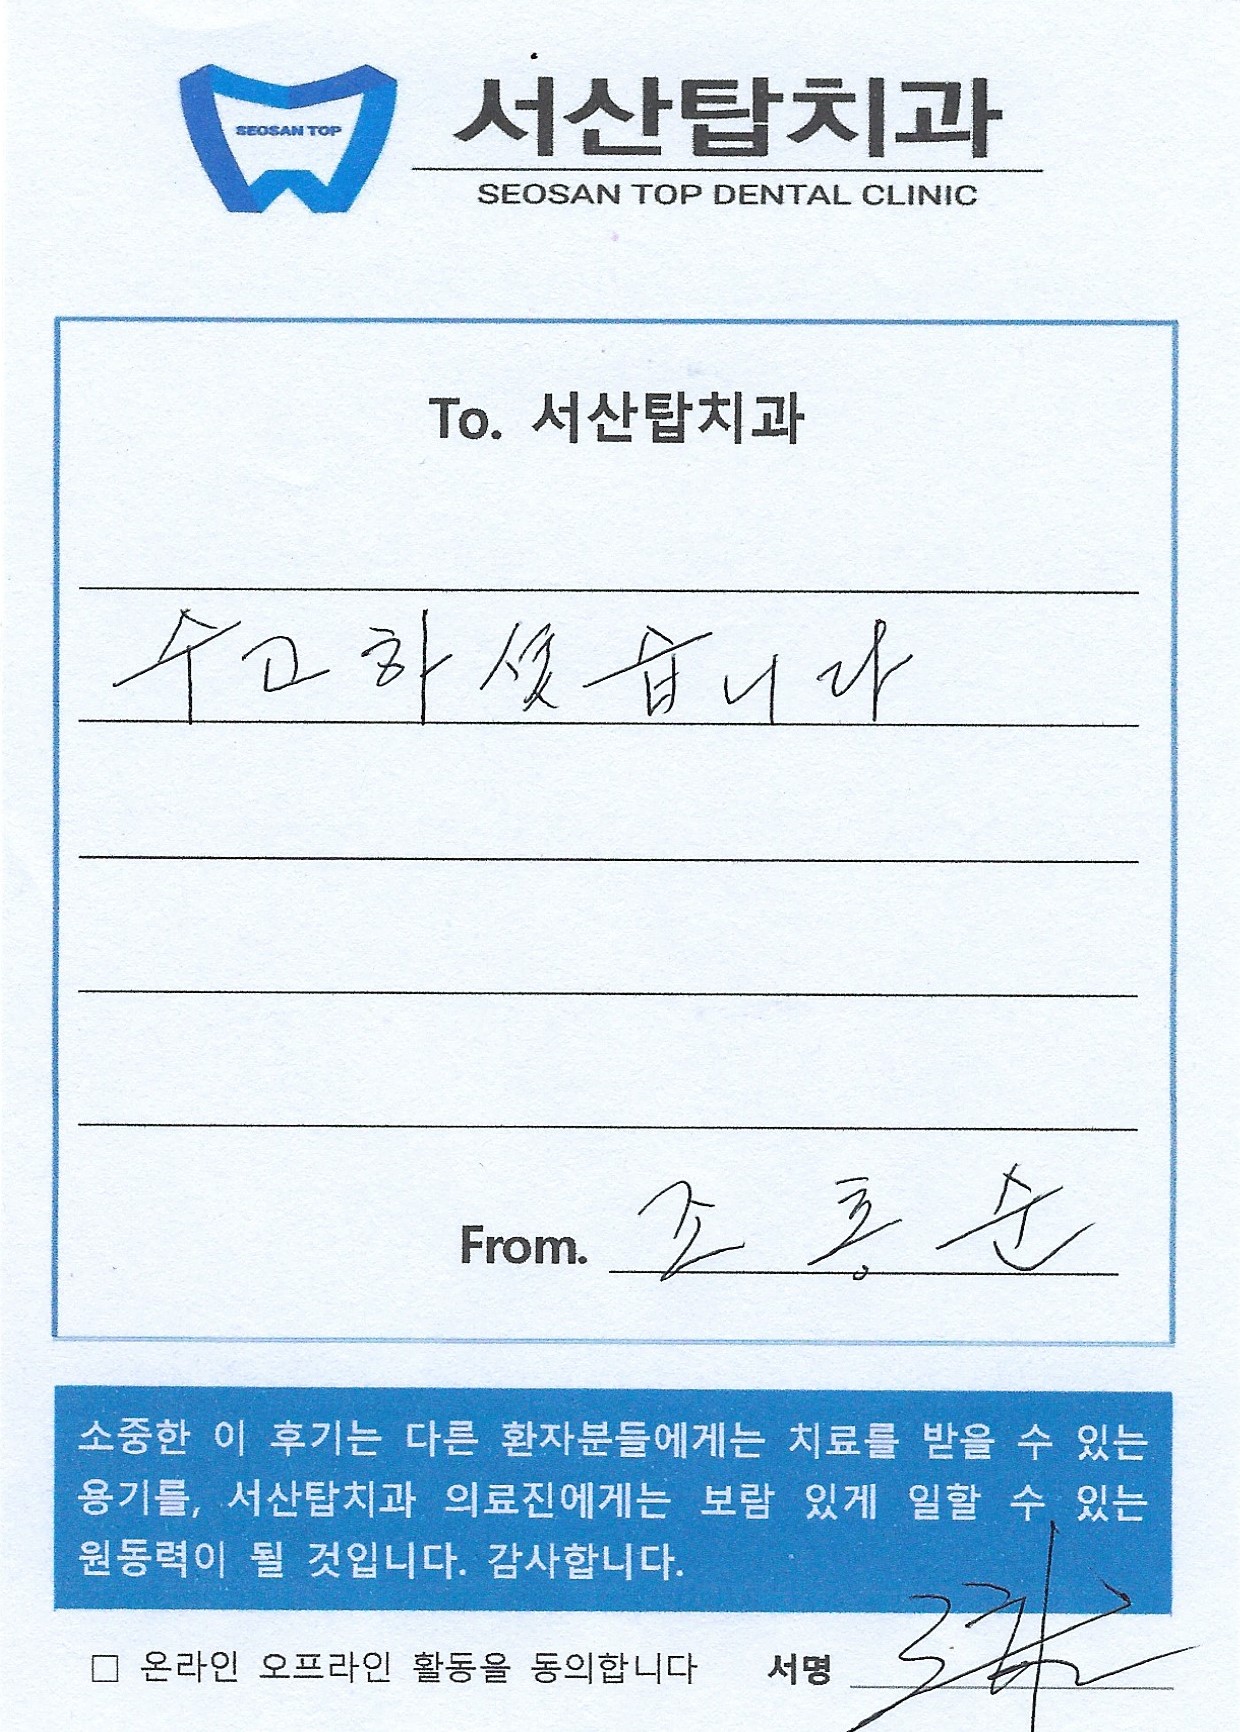 SEOSAN TOP
서산탑치과
SEOSAN TOP DENTAL CLINIC
To. 서산탑치과
수고하셨습니다
From. 조흥순
소중한 이 후기는 다른 환자분들에게는 치료를 받을 수 있는
용기를, 서산탑치과 의료진에게는 보람 있게 일할 수 있는
원동력이 될 것입니다. 감사합니다.
□ 온라인 오프라인 활동을 동의합니다 서명